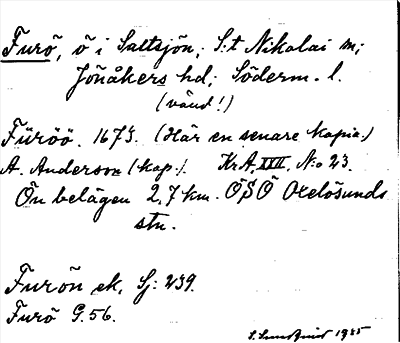 Furö, ö i Saltsjön; S:t Nikolai sn;
Jönåkers hd; Söderm. l.
(vänd!)
Furöö. 1673. (Här en senare kopia.)
A. Anderson (kop.). KrA, XXII, N:o 23.
Ön belägen 2,7 km. ÖSÖ Oxelösunds
stn.
Furön ek. Sj: 239.
Furö G.56.
S. Lundqvist 1935